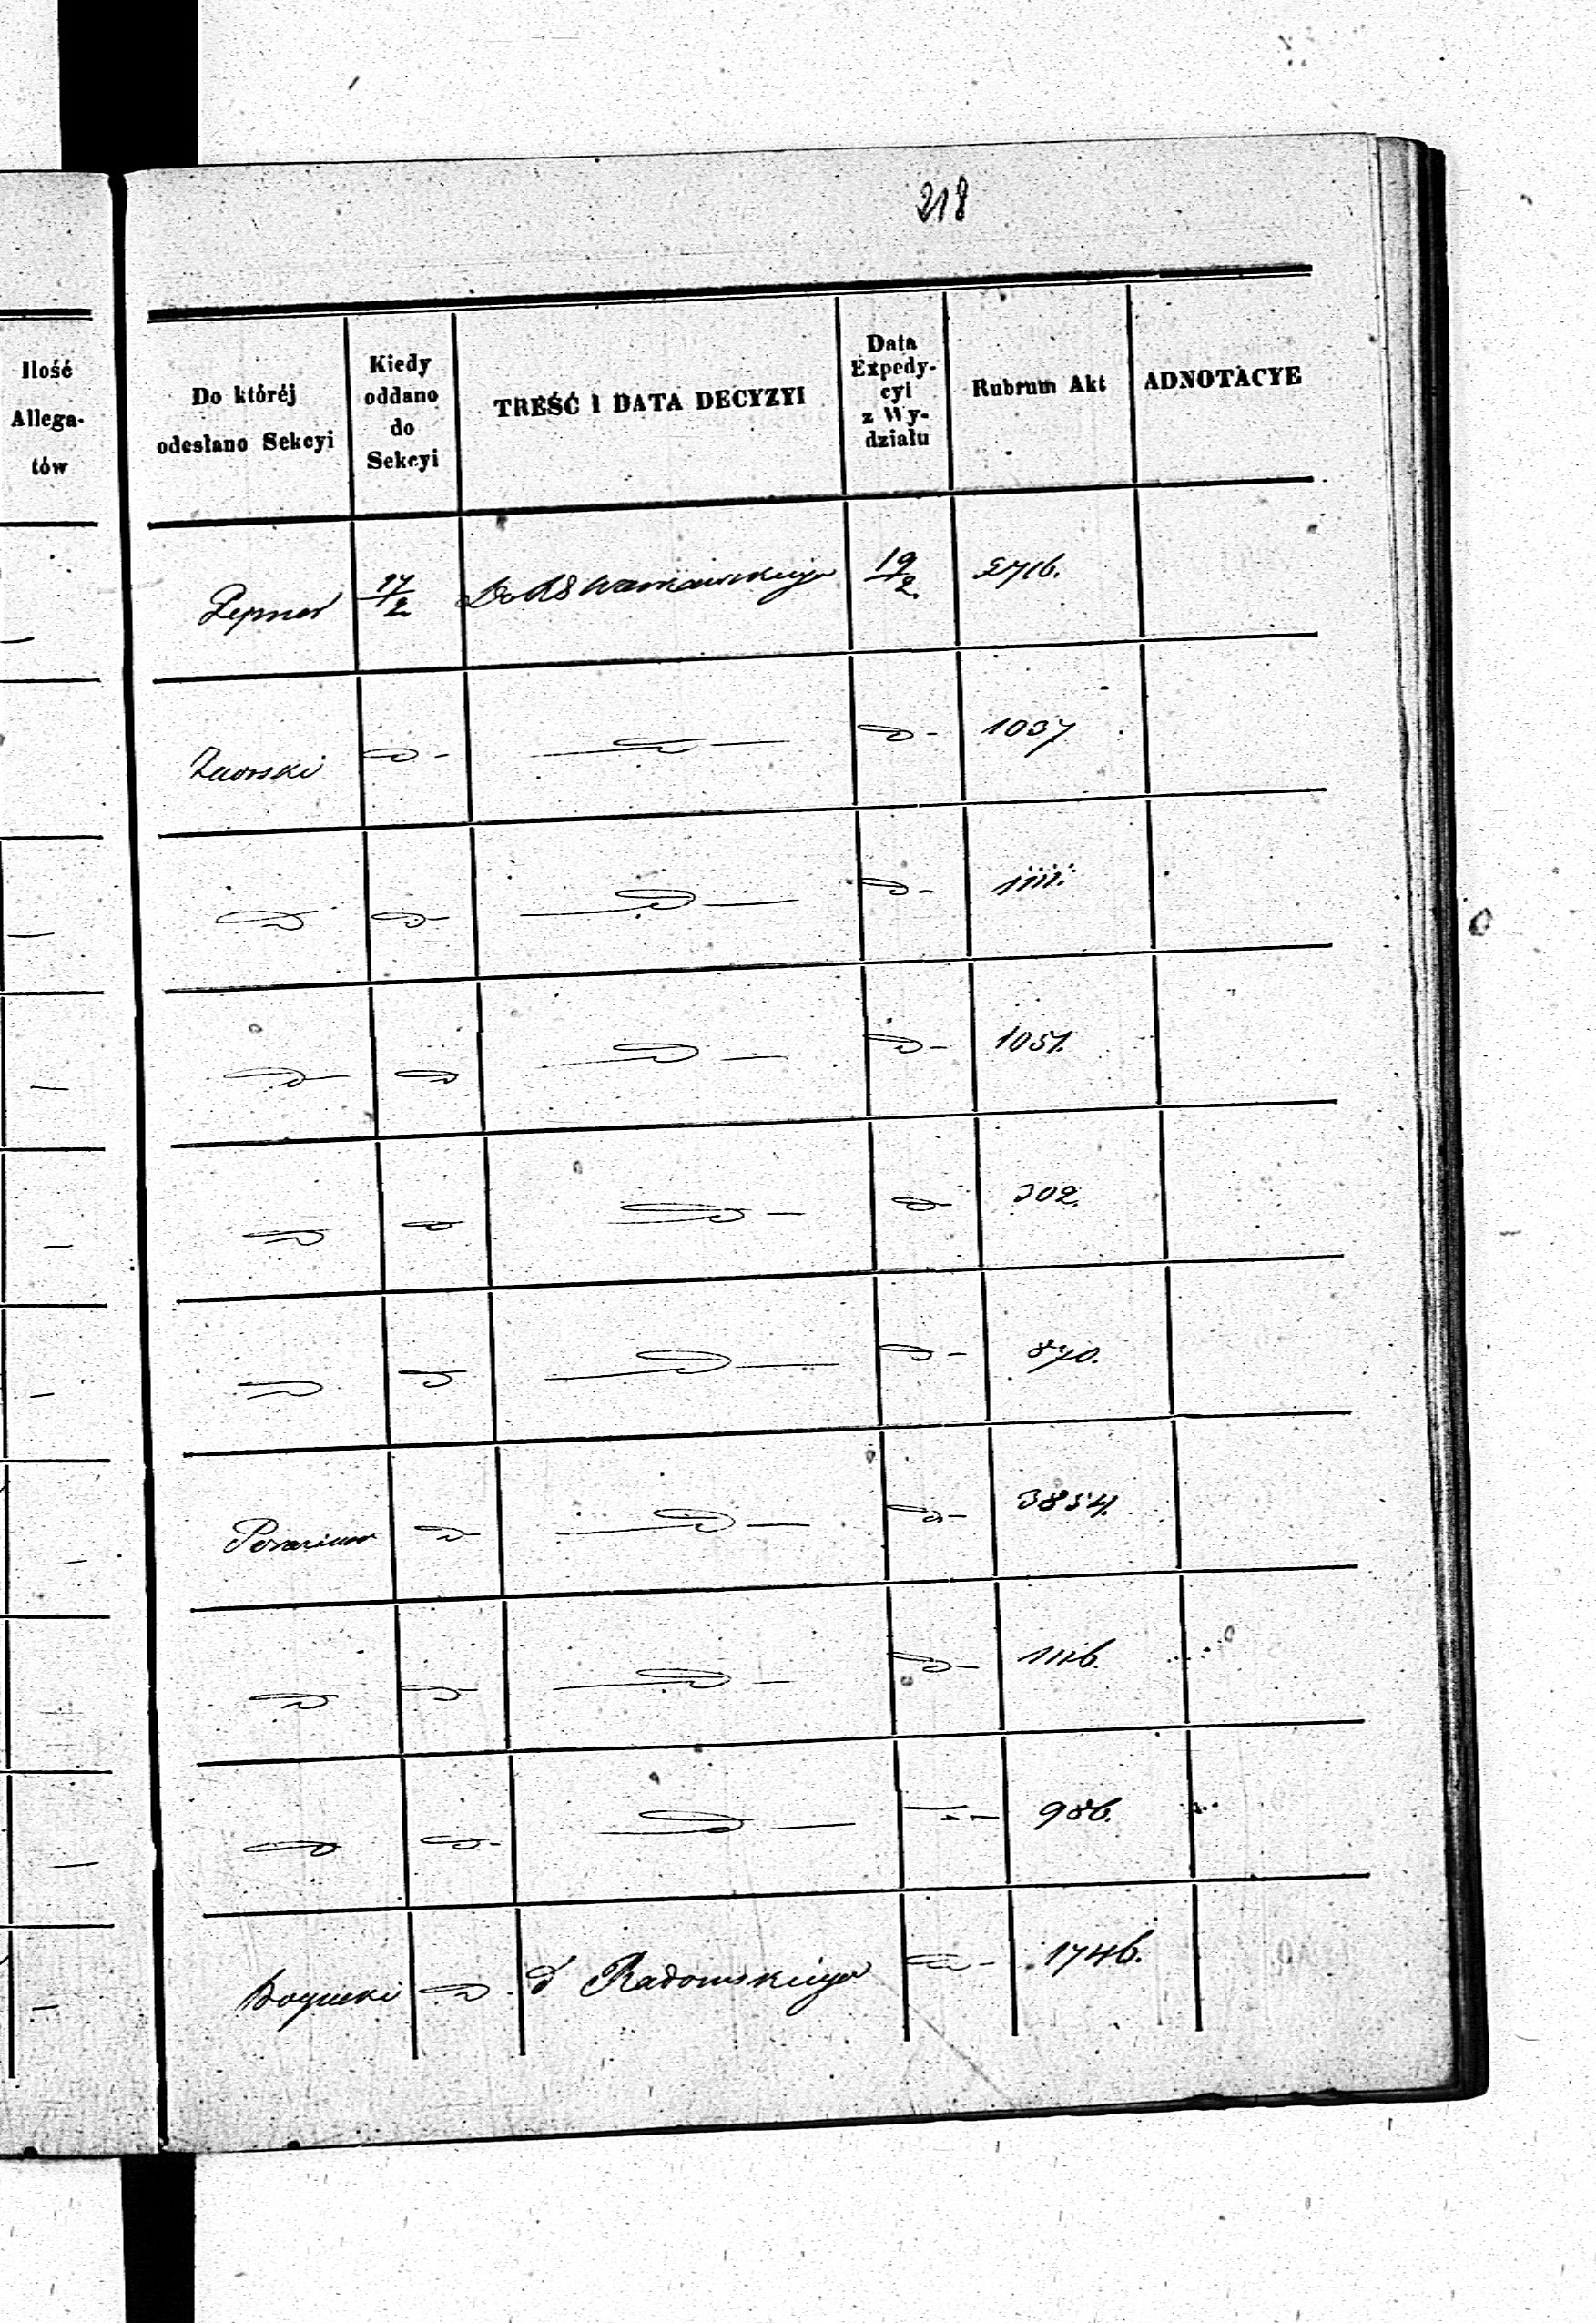 218
Ilość
Allega-
tów
Do któréj
odesłano Sekcyi
Kiedy
oddano
do
Sekcyi
TREŚĆ I DATA DECYZYI
Data
Expedy-
cyi
z Wy-
działu
Rubrum Akt
ADNOTACYE
17/2 Do RS Warszawskiego 19/2 2716.
1037
1111.
1051.
302.
870.
3854.
1116.
986.
Bogucki d Radomskiego 1746.